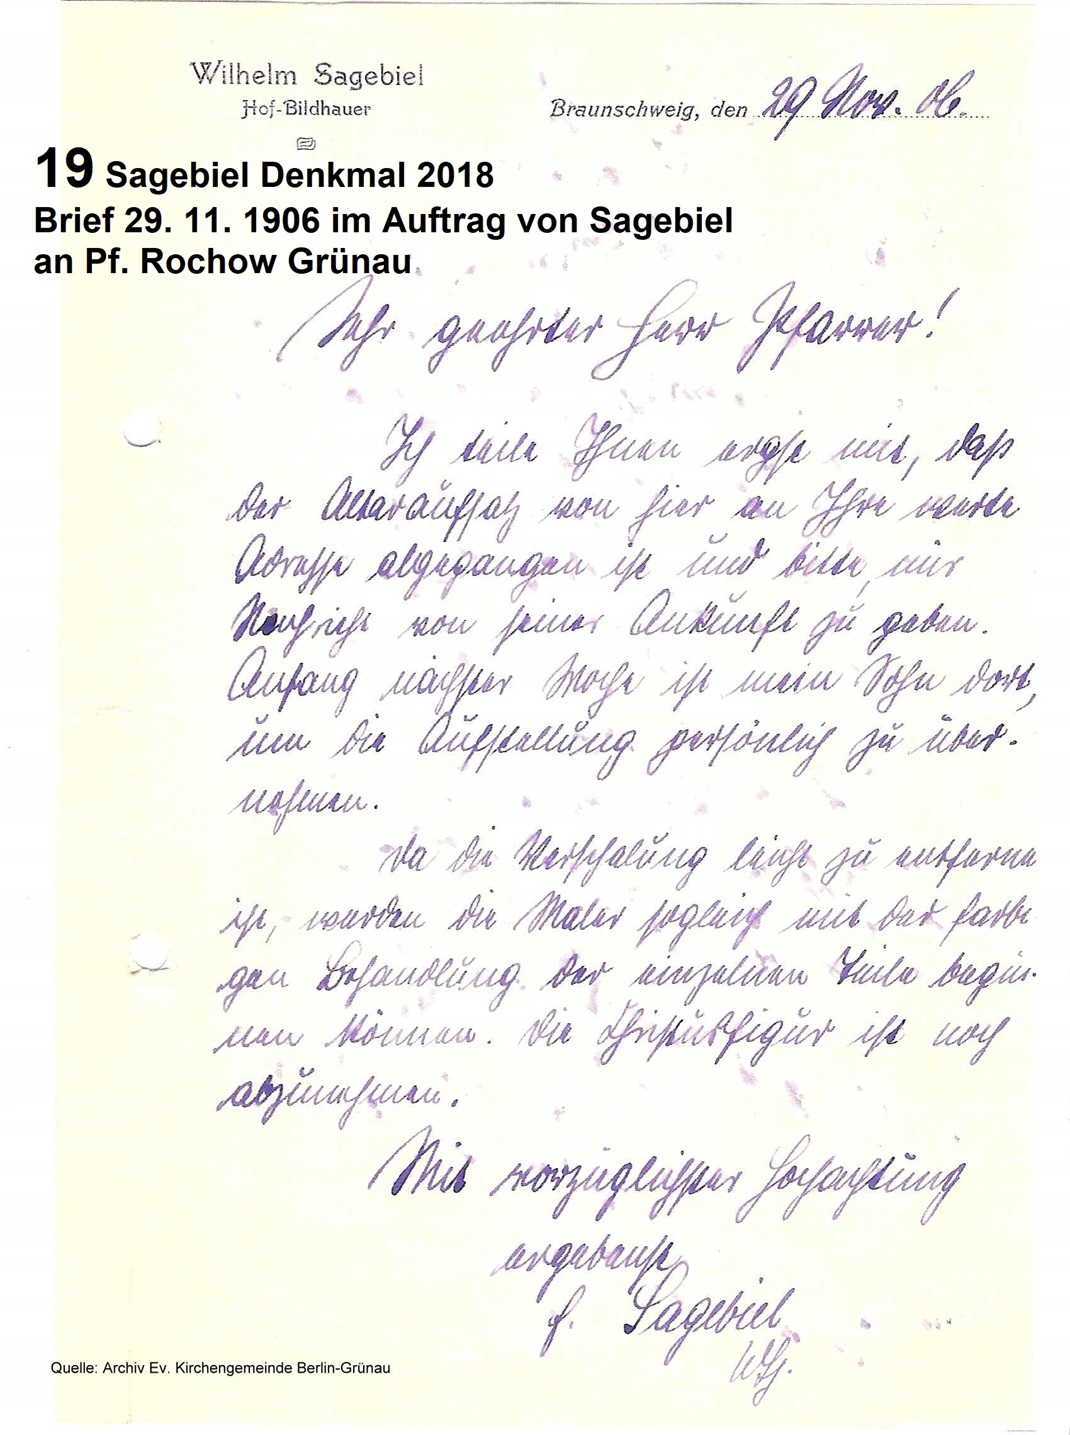 Wilhelm Sagebiel
Hof-Bildhauer
Braunschweig, den 29 Nov. 06.
19 Sagebiel Denkmal 2018
Brief 29. 11. 1906 im Auftrag von Sagebiel
an Pf. Rochow Grünau
Sehr geehrter Herr Pfarrer!
Ich teile Ihnen ergst mit, daß
der Altaraufsatz von hier an Ihre werte
Adresse abgegangen ist und bitte, mir
Nachricht von seiner Ankunft zu geben.
Anfang nächster Woche ist mein Sohn dort,
um die Aufstellung persönlich zu über-
nehmen.
Da die Verschalung leicht zu entferne
ist, werden die Maler sogleich mit der farbi
gen Behandlung der einzelnen Teile begin-
nen können. Die Christusfigur ist noch
abzunehmen.
Mit vorzüglichster Hochachtung
ergebenst
f. Sagebiel
Quelle: Archiv Ev. Kirchengemeinde Berlin-Grünau